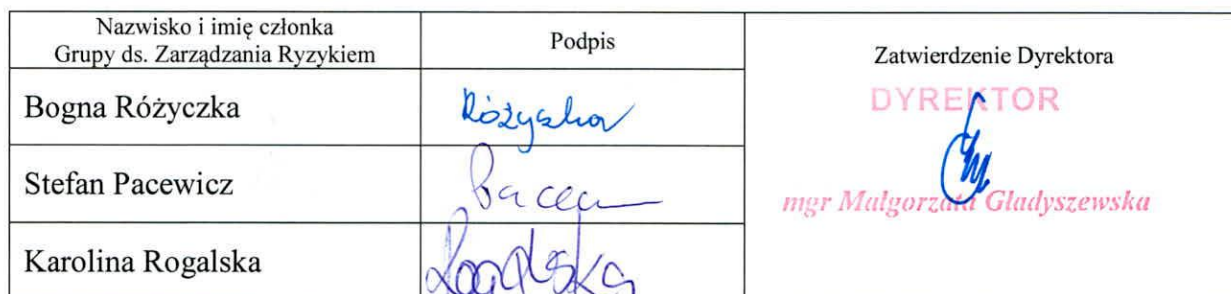 Nazwisko i imię członka
Grupy ds. Zarządzania Ryzykiem
Podpis
Zatwierdzenie Dyrektora
Bogna Różyczka
Różyczka
DYREKTOR
Stefan Pacewicz
mgr Małgorzata Gładyszewska
Karolina Rogalska
Rogalska